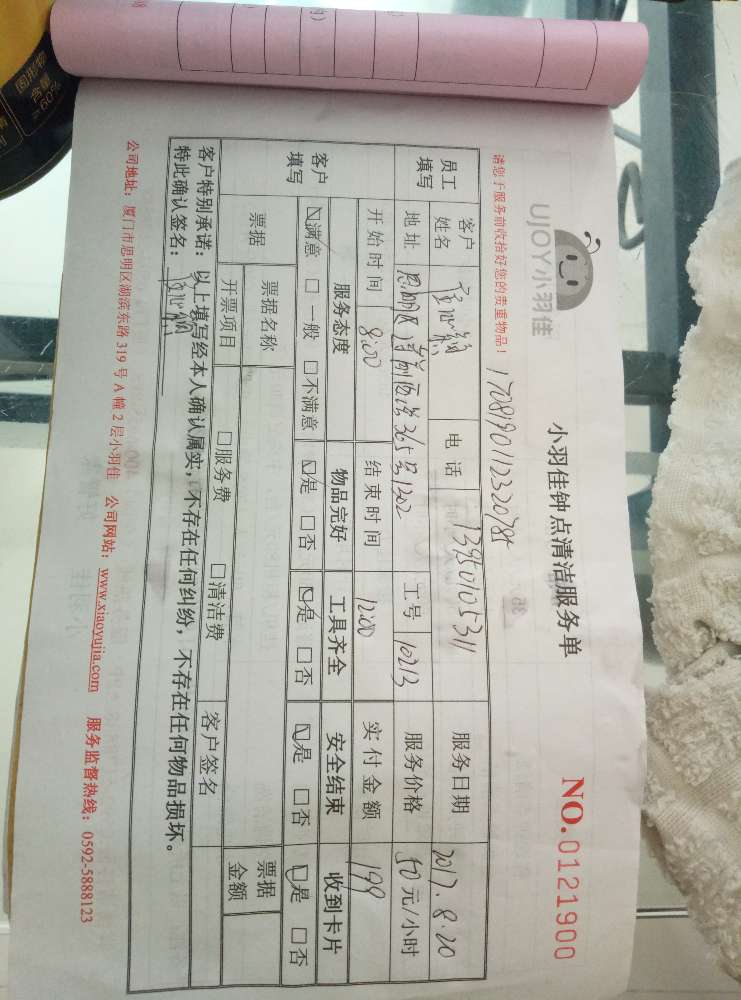 UJOY小羽佳
小羽佳钟点清洁服务单
NO.0121900
请您于服务前收拾好您的贵重物品！
1708190112320785
员工填写
客户姓名
电话 13950105311
服务日期 2017.8.20
地址 思明区 365号1302
工号 10213
服务价格 50元/小时
开始时间 8:00
结束时间 12:00
实付金额 199
客户填写
服务态度 物品完好 工具齐全 安全结束 收到卡片
☑满意 □一般 □不满意 ☑是 □否 ☑是 □否 ☑是 □否 ☑是 □否
票据
票据名称
票据金额
开票项目 □服务费 □清洁费 客户签名
客户特别承诺：以上填写经本人确认属实，不存在任何纠纷，不存在任何物品损坏。
特此确认签名：
公司地址：厦门市思明区湖滨东路 319 号 A 幢 2 层小羽佳 公司网站：www.xiaoyujia.com 服务监督热线：0592-5888123
固形物
含量
≥60%